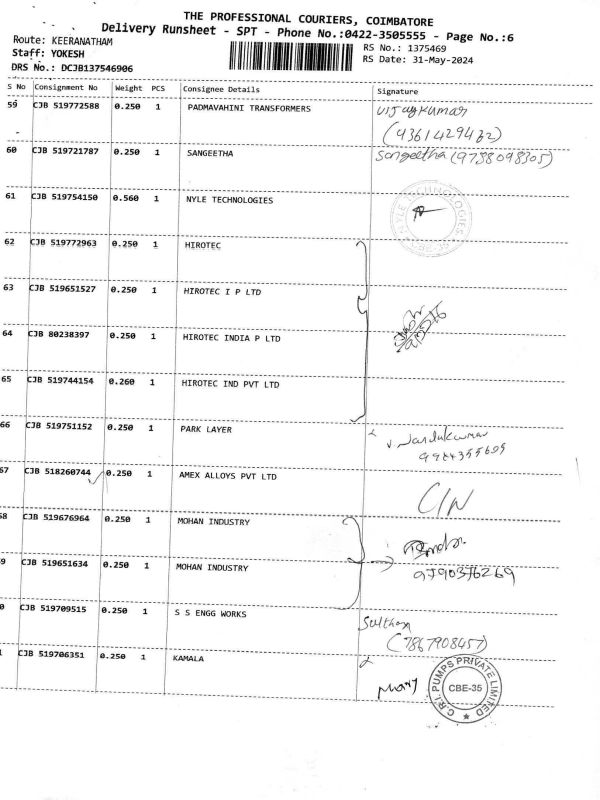 THE PROFESSIONAL COURIERS, COIMBATORE
Delivery Runsheet - SPT - Phone No.:0422-3505555 - Page No.:6
Route: KEERANATHAM
RS No.: 1375469
Staff: YOKESH
RS Date: 31-May-2024
DRS No.: DCJB137546906
S No Consignment No Weight PCS Consignee Details Signature
59 CJB 519772588 0.250 1 PADMAVAHINI TRANSFORMERS Vijaykumar
(9361429432)
60 CJB 519721787 0.250 1 SANGEETHA Sangeetha (9788098305)
61 CJB 519754150 0.560 1 NYLE TECHNOLOGIES
NYLE TECHNOLOGIES
62 CJB 519772963 0.250 1 HIROTEC
63 CJB 519651527 0.250 1 HIROTEC I P LTD
64 CJB 80238397 0.250 1 HIROTEC INDIA P LTD
65 CJB 519744154 0.260 1 HIROTEC IND PVT LTD
66 CJB 519751152 0.250 1 PARK LAYER
67 CJB 518260744 0.250 1 AMEX ALLOYS PVT LTD
8 CJB 519676964 0.250 1 MOHAN INDUSTRY
9 CJB 519651634 0.250 1 MOHAN INDUSTRY
9790376269
0 CJB 519709515 0.250 1 S S ENGG WORKS
(7867908457)
CJB 519706351 0.250 1 KAMALA
C.R.I. PUMPS PRIVATE LIMITED
CBE-35